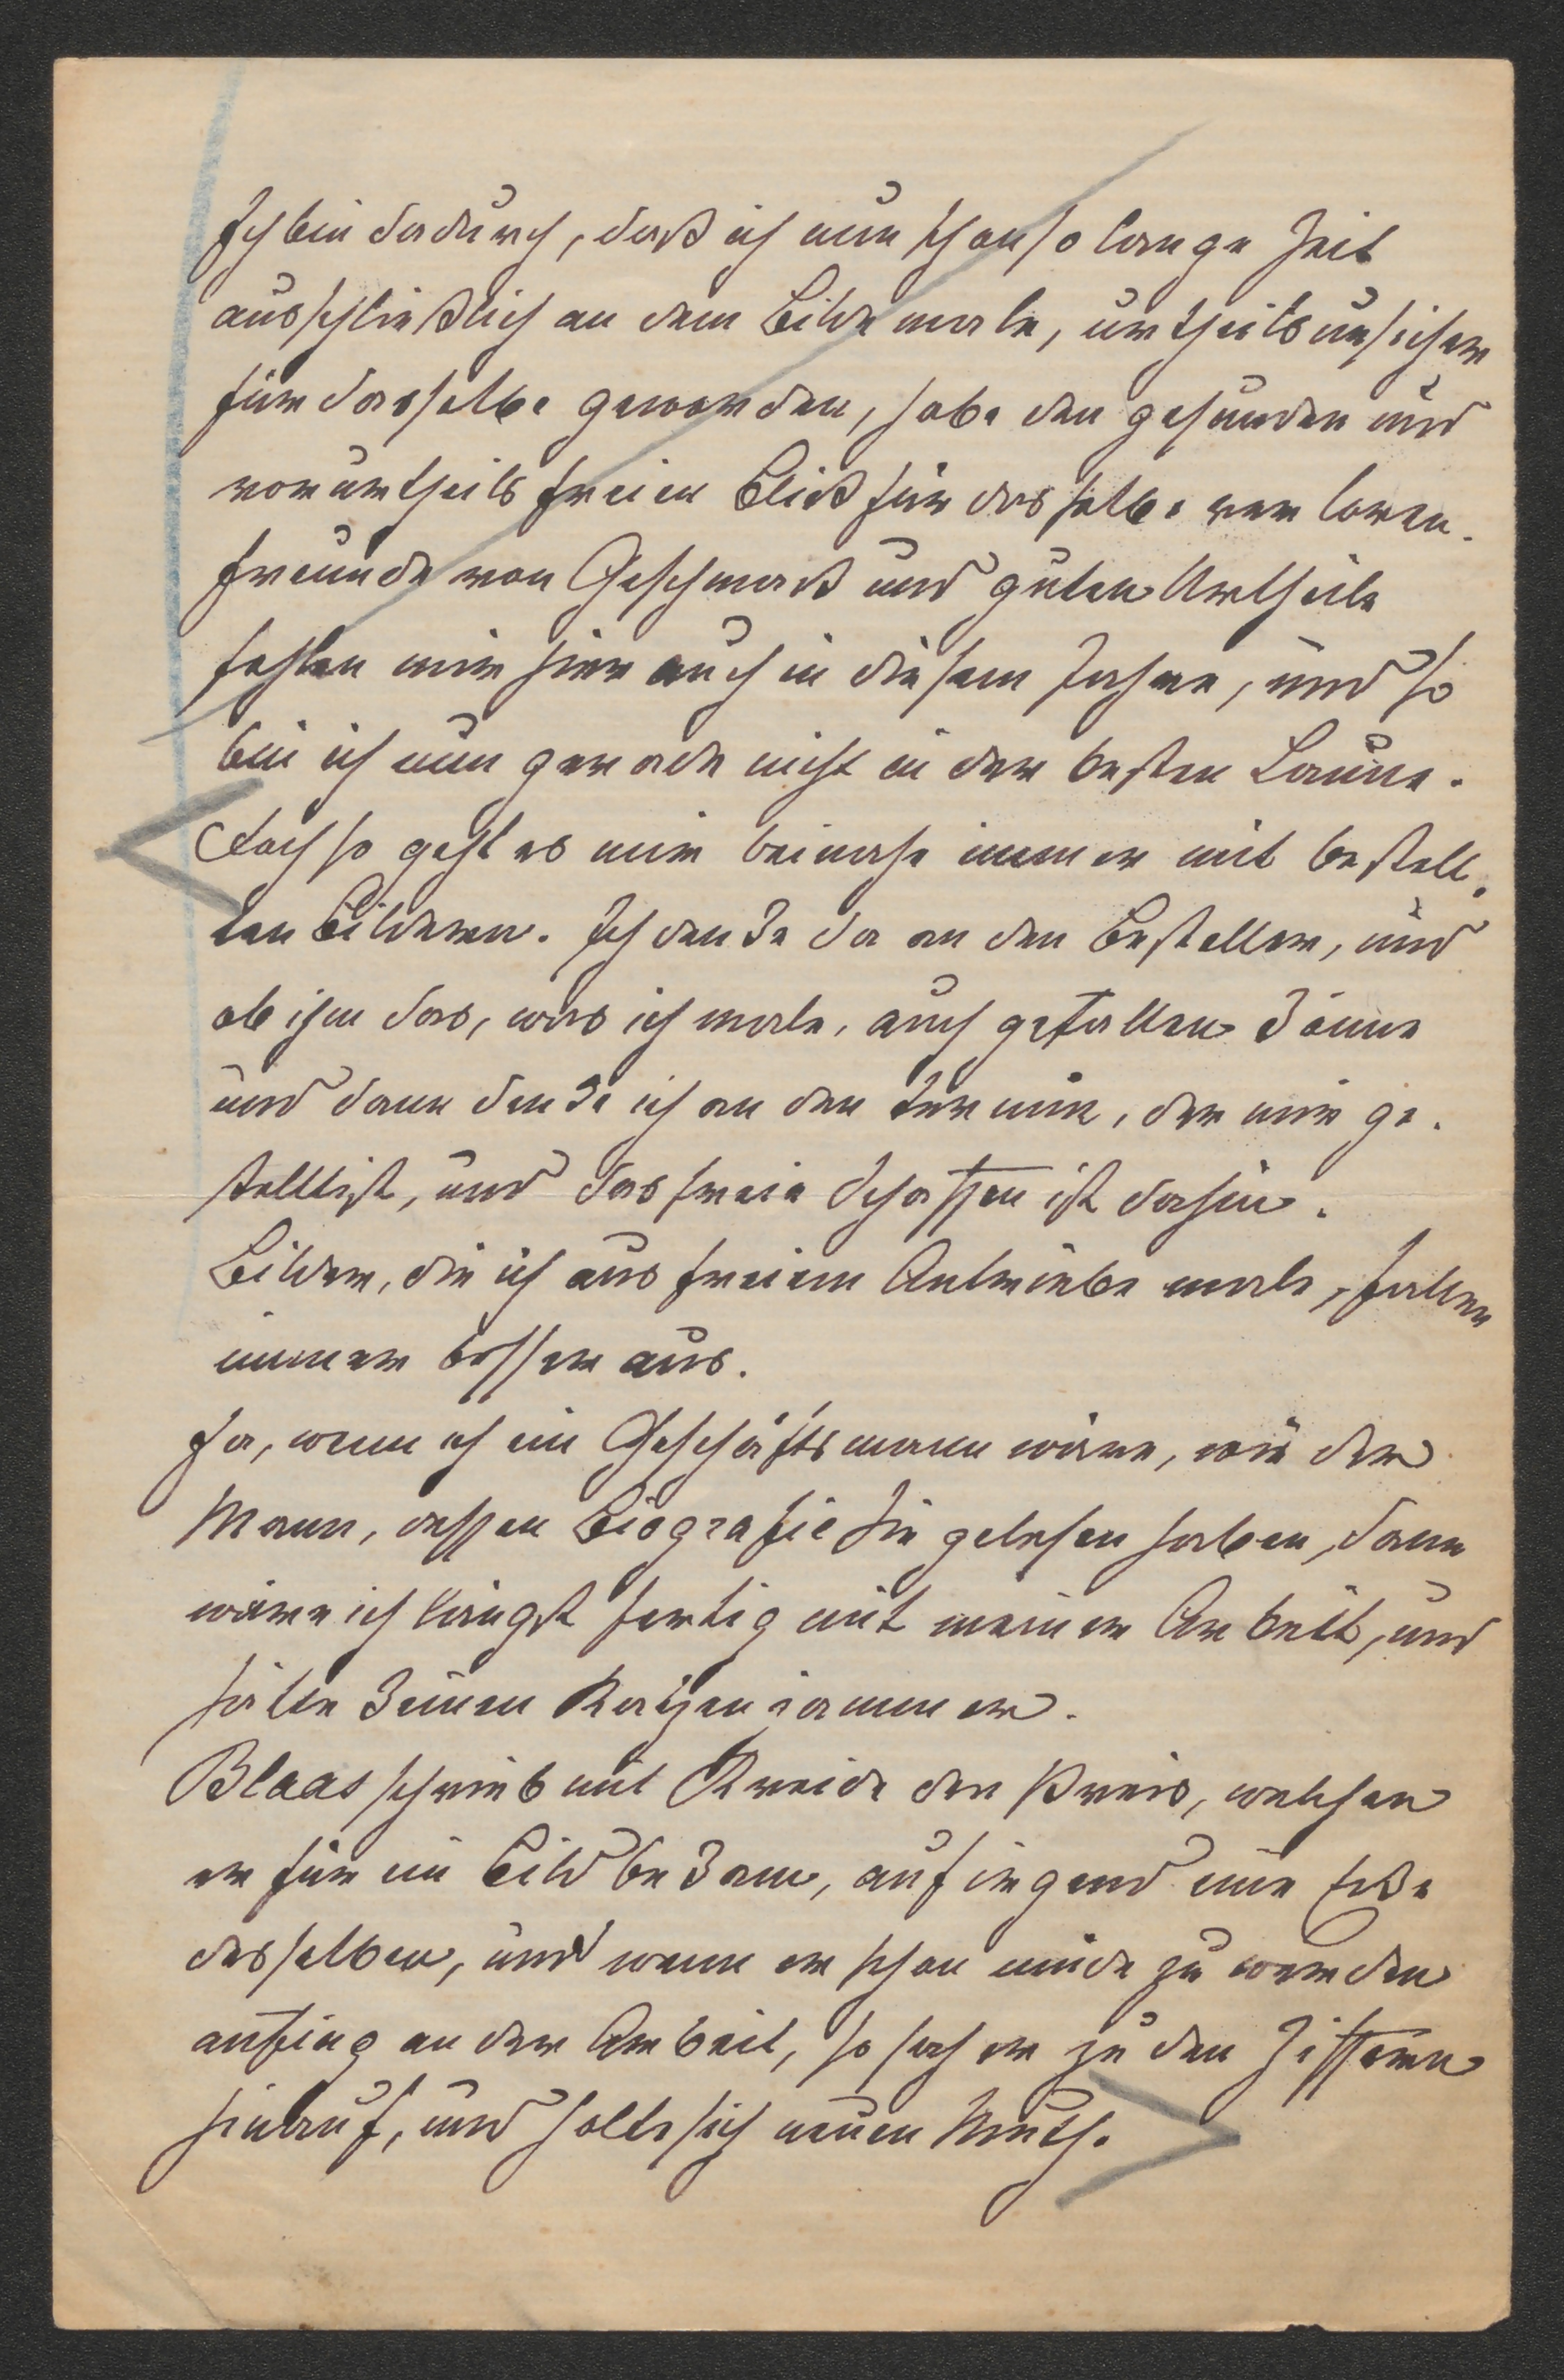 Ich bin dadurch, daß ich nun schon so lange Zeit
ausschließlich an dem Bilde male, urtheilsunsicher
für dasselbe geworden, habe den gesunden und
vorurtheilsfreien Blick für dasselbe verloren.
Freunde von Geschmack und gutem Urtheile
fehlen mir hier auch in diesem Jahre, und so
bin ich nun gerade nicht in der besten Laune.
Doch so geht es mir beinahe immer mit bestell-
ten Bildern. Ich denke da an den Besteller, und
ob ihm das, was ich male, auch gefallen könne
und dann denke ich an den Termin, der mir ge-
stellt ist, und das freie Schaffen ist dahin.
Bilder, die ich aus freiem Antriebe male, fallen
immer besser aus.
Ja, wenn ich ein Geschäftsmann wäre, wie der
Mann, dessen Biografie Sie gelesen haben, dann
wäre ich längst fertig mit meiner Arbeit, und
hätte keinen Katzenjammer.
Blaas schrieb mit Kreide den Preis, welchen
er für ein Bild bekam, auf irgend eine Ecke
desselben, und wenn er schon müde zu werden
anfing an der Arbeit, so sah er zu den Ziffern
hinauf, und holte sich neuen Muth.